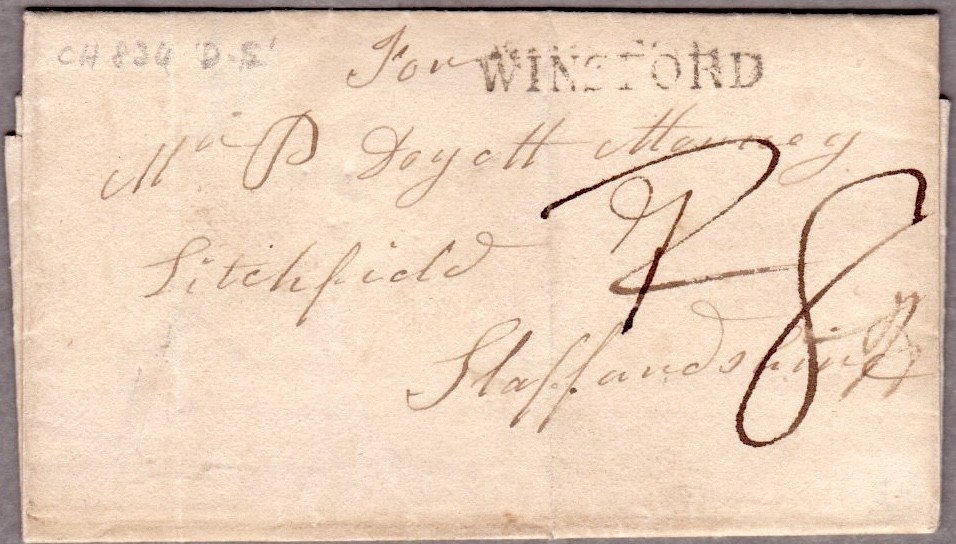 CH 834 'D.E'
For WINSFORD
Mr P Dyott Attorney
Litchfield
Staffordshire
8